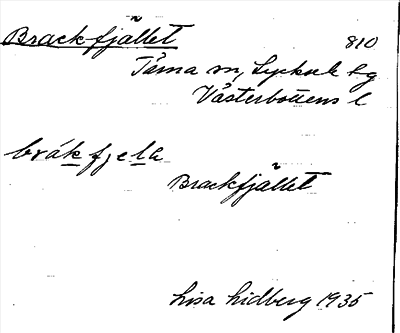 Brackfjället 810
Tärna sn, Lycksele tg
Västerbottens l
brákfjella
Brackfjället
Lisa Lidberg 1935